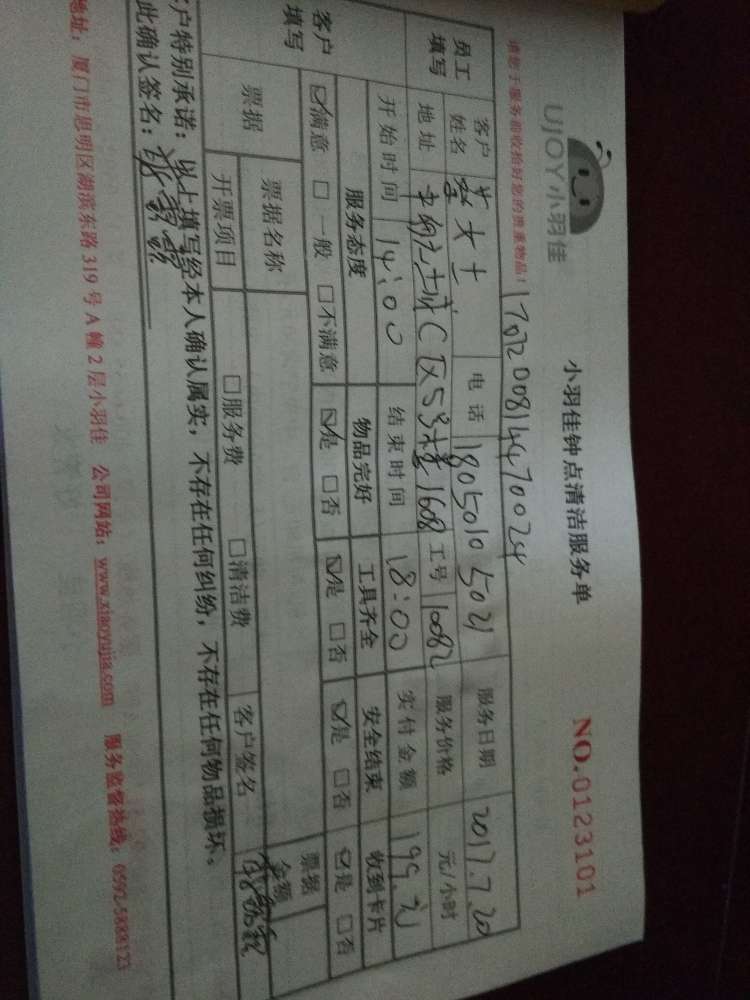 UJOY小羽佳
小羽佳钟点清洁服务单
NO.0123101
请您于服务前收拾好您的贵重物品！
员工填写
客户姓名 女士 电话 18050105021 服务日期 2017.7.20
地址 C区53楼1608 工号 10082 服务价格 元/小时
开始时间 14:00 结束时间 18:00 实付金额 199.元
客户填写
服务态度 物品完好 工具齐全 安全结束 收到卡片
☑满意 □一般 □不满意 ☑是 □否 ☑是 □否 ☑是 □否 ☑是 □否
票据 票据名称 票据金额
开票项目 □服务费 □清洁费 客户签名
客户特别承诺：以上填写经本人确认属实，不存在任何纠纷，不存在任何物品损坏。
此确认签名：
地址：厦门市思明区湖滨东路319号A幢2层小羽佳 公司网站：www.xiaoyujia.com 服务监督热线：0592-5888123